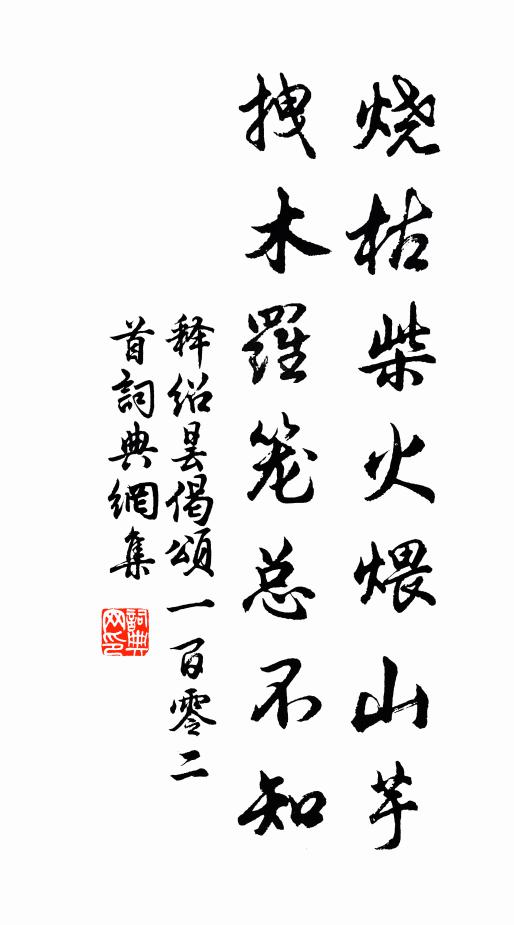 烧枯柴火煨山芋
拽木羅笼总不知
释绍昙偈頌一百零二
首詞典網集
詞典网印